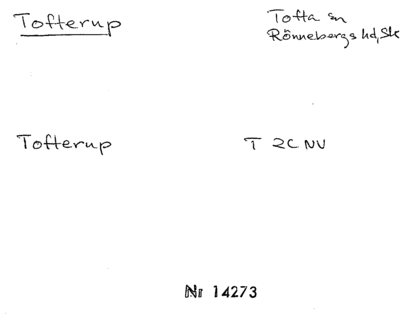 Tofterup
Tofta sn
Rönnebergs hd, Sk
Tofterup
T 2C NV
Nr 14273